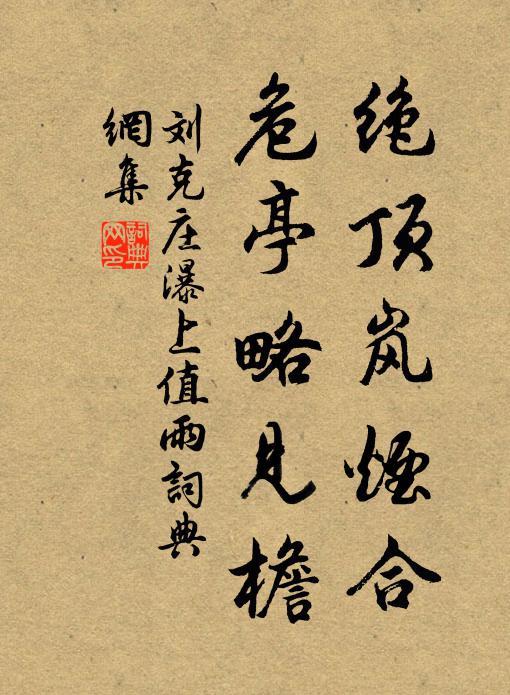 绝顶岚烟合
危亭略见檐
刘克庄瀑上值雨詞典
網集
詞典
网印